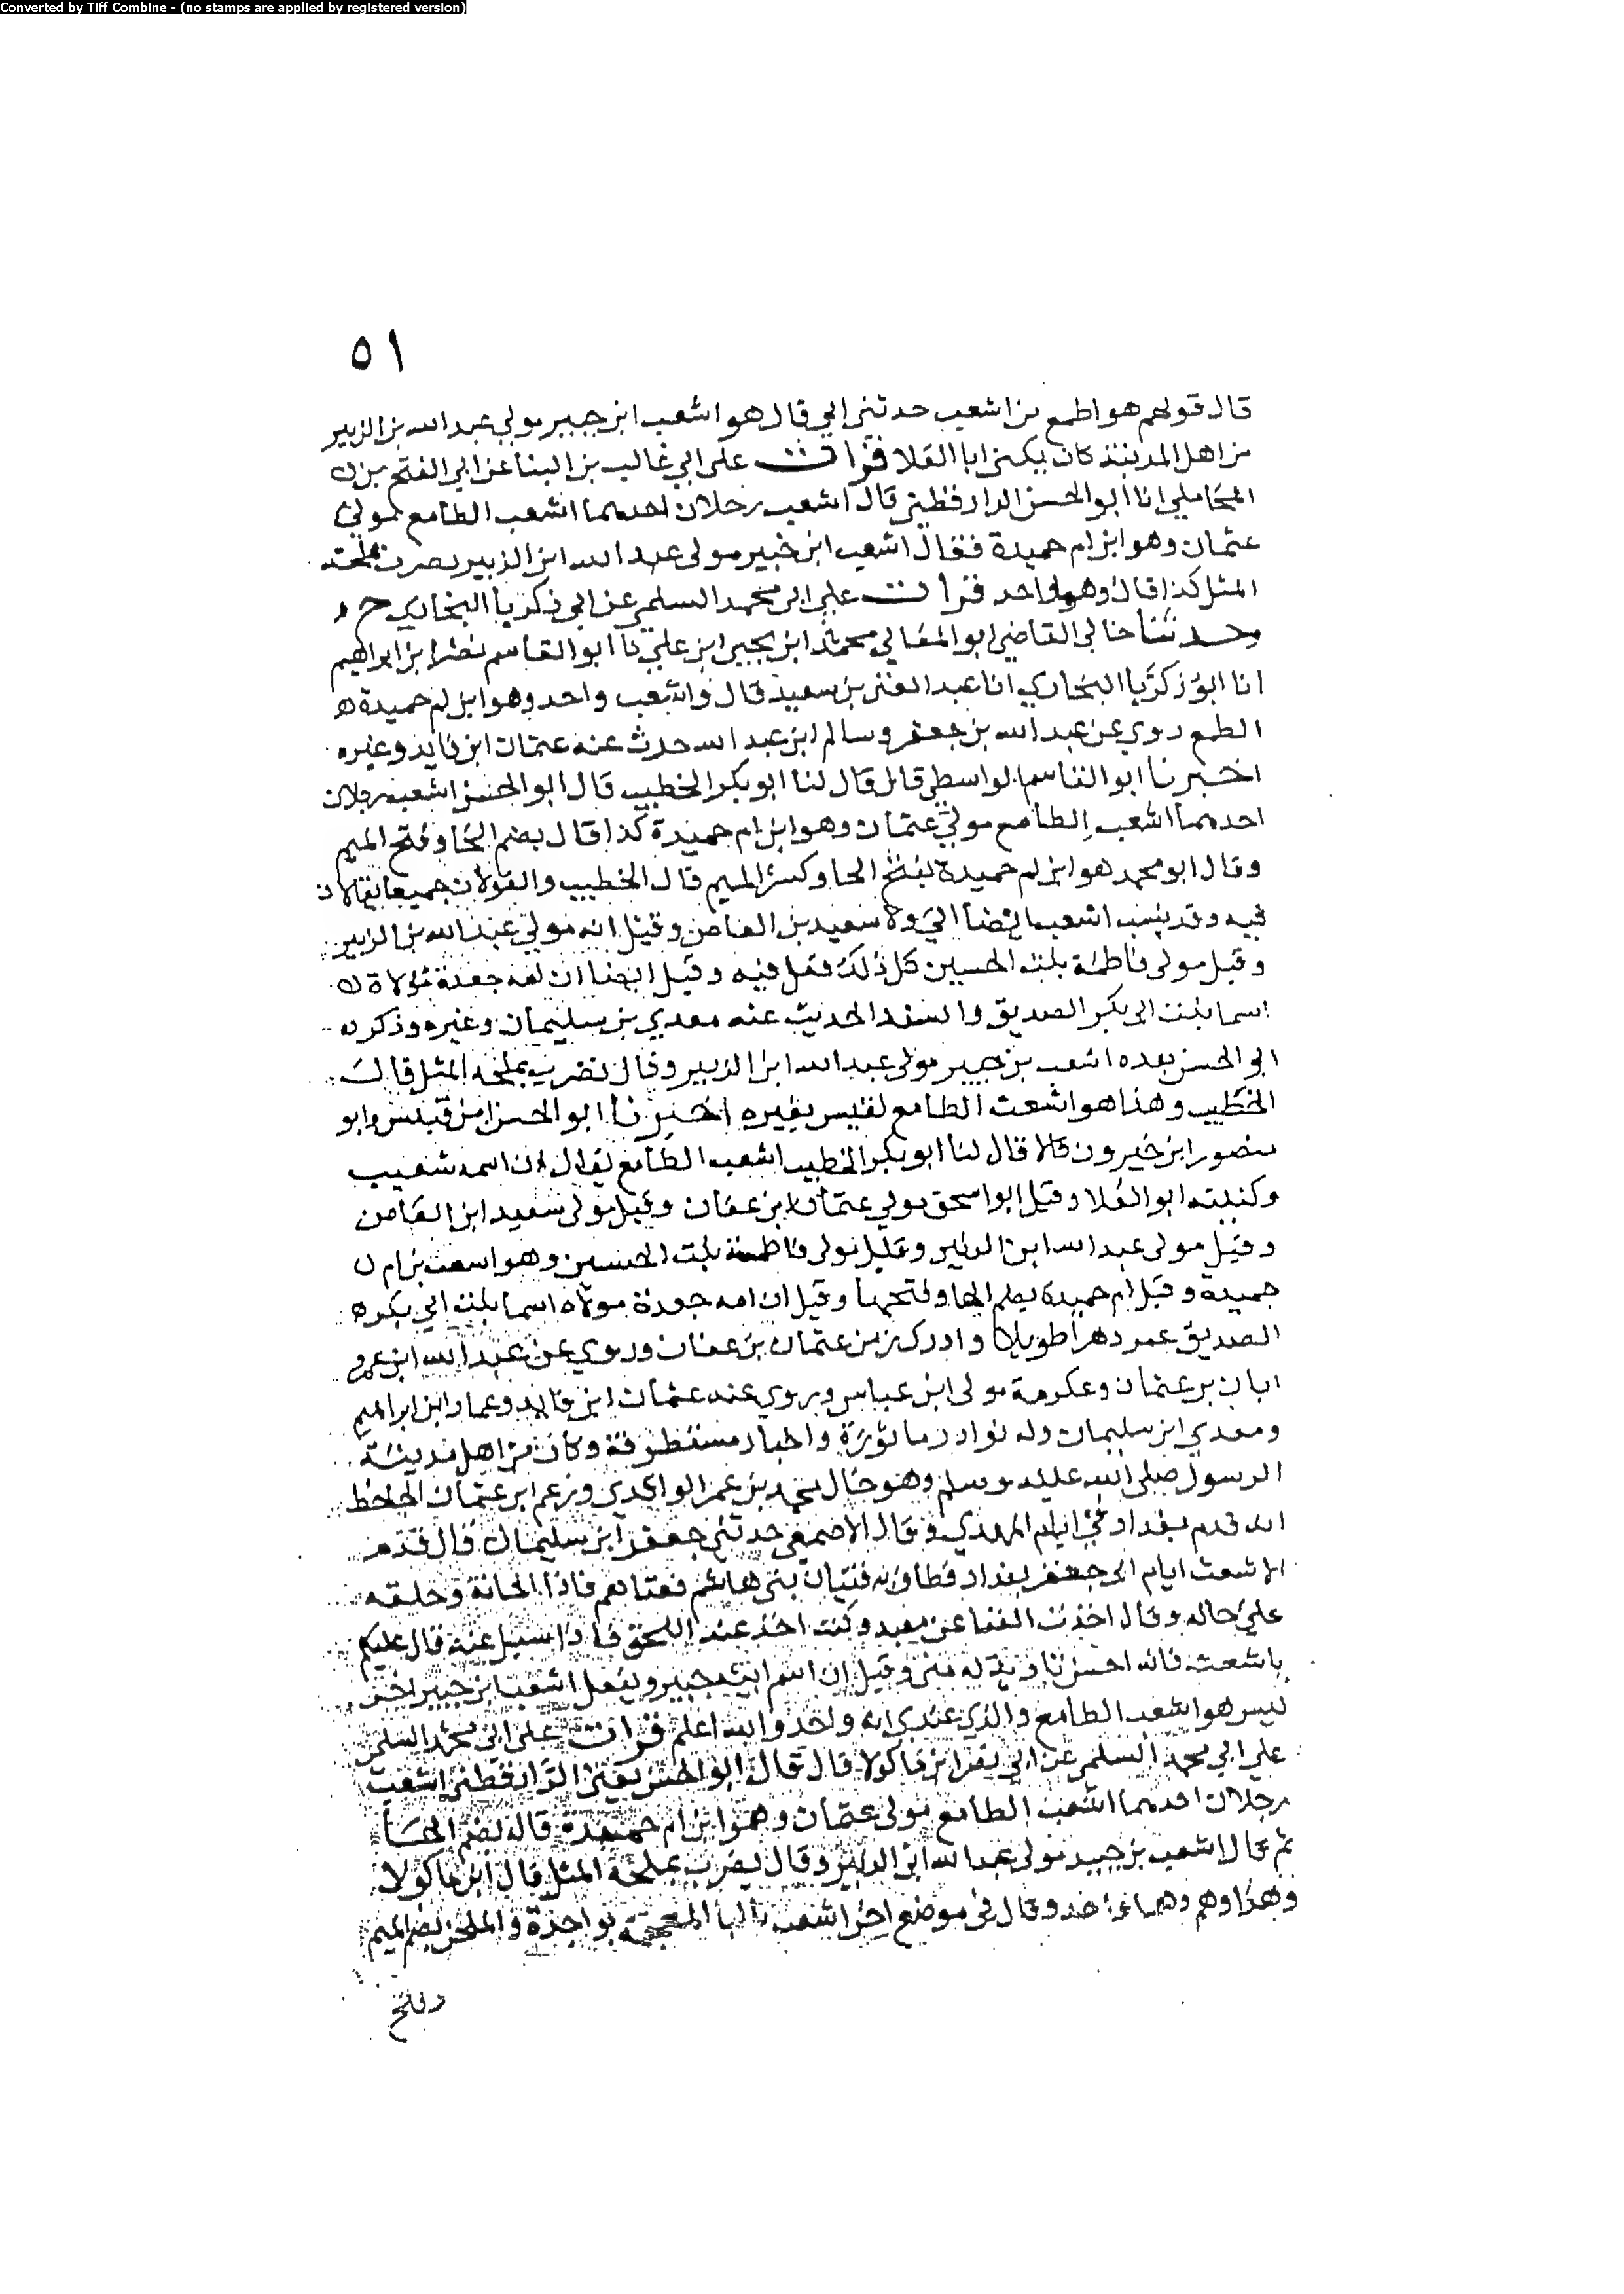 Converted by Tiff Combine - (no stamps are applied by registered version)
٥١
قال قولهم هو اطمع من اشعب حدثني ابي قال هو اشعب ابن جبير مولي عبد الله بن الزبير
من اهل المدينة كان يكنى ابا العلا قرات على ابي غالب بن البنا عن ابي الفتح بن
المحاملي انا ابو الحسن الدارقطني قال اشعب رجلان احدهما اشعب الطامع مولي
عثمان وهو ابن ام حميدة فقال اشعب ابن جبير مولى عبد الله ابن الزبير يضرب بملحته
المثل كذا قال وهما واحد قرات على ابي محمد السلمي عن ابي زكريا البخاري ح و
وحدثنا خالي القاضي ابو المعالي محمد ابن يحيى ابن علي نا ابو القاسم نصر ابن ابراهيم
انا ابو زكريا البخاري انا عبد الغني بن سعيد قال واشعب واحد وهو ابن ام حميدة
الطمع روي عن عبد الله بن جعفر وسالم ابن عبد الله حدث عنه عثمان ابن فايد وغيره
اخبرنا ابو القاسم الواسطي قال قال لنا ابو بكر الخطيب قال ابو الحسن اشعب رجلان
احدهما اشعب الطامع مولي عثمان وهو ابن ام حميدة كذا قال بضم الحا وفتح الميم
وقال ابو محمد هو ابن ام حميدة بفتح الحا وكسر الميم قال الخطيب والقولان جميعا يقالان
فيه وقد ينسب اشعب ايضا الي ولا سعيد بن العاص وقيل انه مولي عبد الله بن الزبير
وقيل مولى فاطمة بنت الحسين كل ذلك قيل فيه وقيل ايضا ان امه جعدة مولاة
اسما بنت ابي بكر الصديق واسند الحديث عنه معدي بن سليمان وغيره وذكر
ابو الحسن بعده اشعب بن جبير مولى عبد الله ابن الزبير وقال يضرب بملحه المثل قال
الخطيب وهذا هو اشعب الطامع ليس بغيره اخبرنا ابو الحسن ابن قبيس وابو
منصور ابن خيرون قالا قال لنا ابو بكر الخطيب اشعب الطامع يقال ان اسمه شعيب
وكنيته ابو العلا وقيل ابو اسحق مولي عثمان ابن عفان وقيل مولى سعيد ابن العاص
وقيل مولى عبد الله ابن الزبير وقيل مولى فاطمة بنت الحسين وهو اشعب بن ام
حميدة وقيل ام حميدة بضم الحا وفتحها وقيل ان امه جعدة مولاه اسما بنت ابي بكر
الصديق عمر دهرا طويلا وادرك زمن عثمان بن عفان وروي عن عبد الله ابن عمر و
ابان بن عثمان وعكرمة مولى ابن عباس وروي عنه عثمان ابن فايد وعمار ابن ابراهيم
ومعدي ابن سليمان وله نوادر ماثورة واخبار مستطرفة وكان من اهل مدينة
الرسول صلى الله عليه وسلم وهو خال محمد بن عمر الواقدي وزعم ابن عثمان الجاحظ
انه قدم بغداد في ايام المهدي وقال الاصمعي حدثني جعفر ابن سليمان قال قدم
اشعث ايام ابي جعفر بغداد فطاف به فتيان بني هاشم فغناهم فاذا الحانة وحلقه
على حاله وقال اخذت الغنا عن معبد وكنت اخذ عنه اللحن فاذا سيل عنه قال عليكم
باشعث فانه احسن تادية له مني وقيل ان اسم ابيه جبير وقيل اشعب ابن جبير اخر
ليس هو اشعب الطامع والذي عندي انه واحد والله اعلم قرات على ابي محمد السلمي
على ابي محمد السلمي عن ابي نصر ابن ماكولا قال قال ابو الحسن يعني الدارقطني اشعب
رجلان احدهما اشعب الطامع مولى عثمان وهو ابن ام حميدة قاله بضم الحا
ثم قال اشعب بن جبير مولى عبد الله ابن الزبير وقال يضرب بملحه المثل قال ابن ماكولا
وهذا وهم وهما واحد وقال في موضع اخر اشعب بالبا المعجمة بواحدة والملحي بضم الميم
وفتح